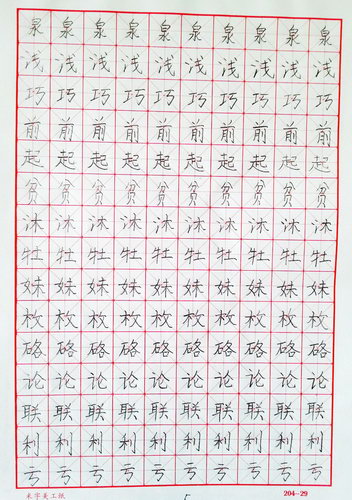 泉泉泉泉泉泉泉泉泉泉
浅浅浅浅浅浅浅浅浅浅
巧巧巧巧巧巧巧巧巧巧
前前前前前前前前前前
起起起起起起起起起起
贫贫贫贫贫贫贫贫贫贫
沐沐沐沐沐沐沐沐沐沐
牡牡牡牡牡牡牡牡牡牡
妹妹妹妹妹妹妹妹妹妹
枚枚枚枚枚枚枚枚枚枚
硌硌硌硌硌硌硌硌硌硌
论论论论论论论论论论
联联联联联联联联联联
利利利利利利利利利利
亏亏亏亏亏亏亏亏亏亏
米字美工纸 5 204--29